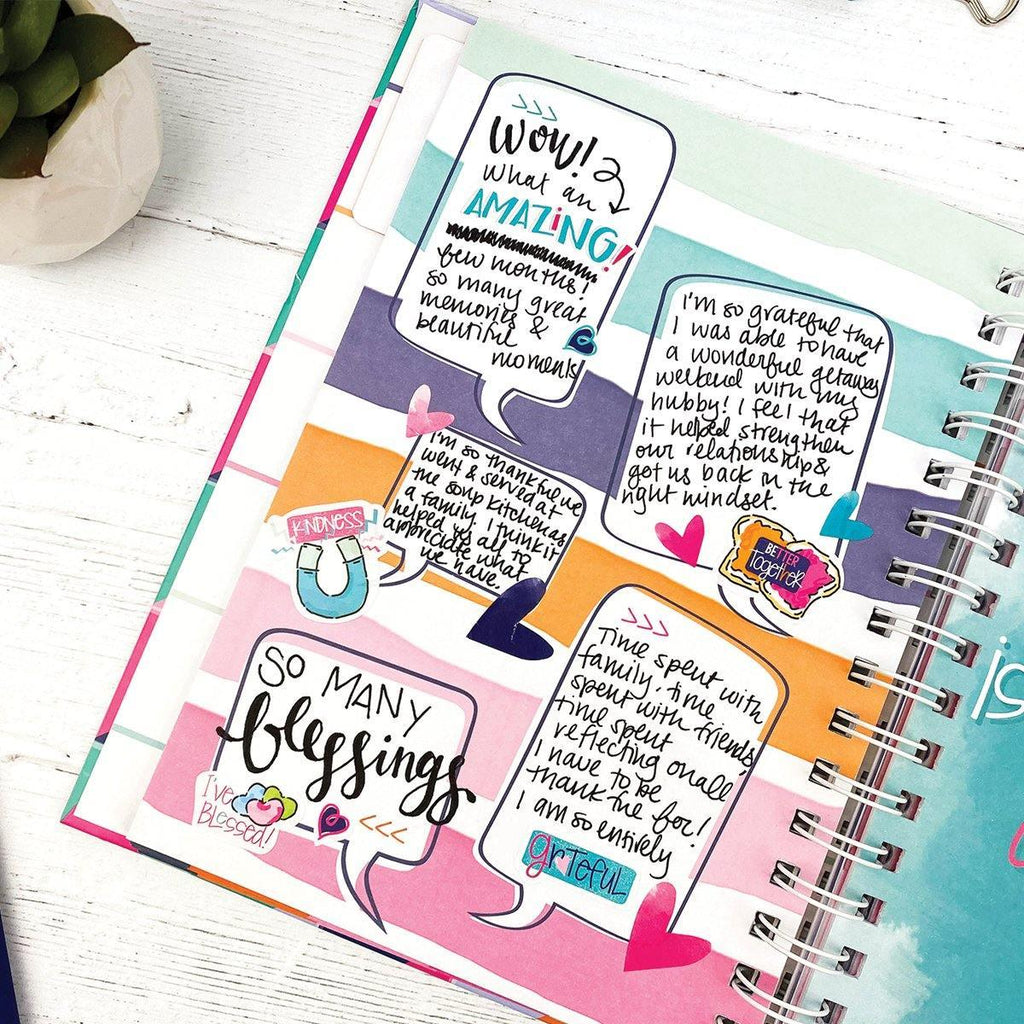 Wow!
What an
AMAZiNG!
few months!
so many great
memories &
beautiful
moments
I'm so grateful that
I was able to have
a wonderful getaway
weekend with my
hubby! I feel that
it helped strengthen
our relationship &
get us back in the
right mindset.
I'm so thankful we
went & served at
the soup kitchen as
a family. I think it
helped us all to
appreciate what
we have.
KiNDNESS
BETTER
TogetHER
Time spent with
family, time
spent with friends,
time spent
reflecting on all
I have to be
thankful for!
I am so entirely
grATEFUL
SO MANY
blessings
I'VE
BLESSED!
is